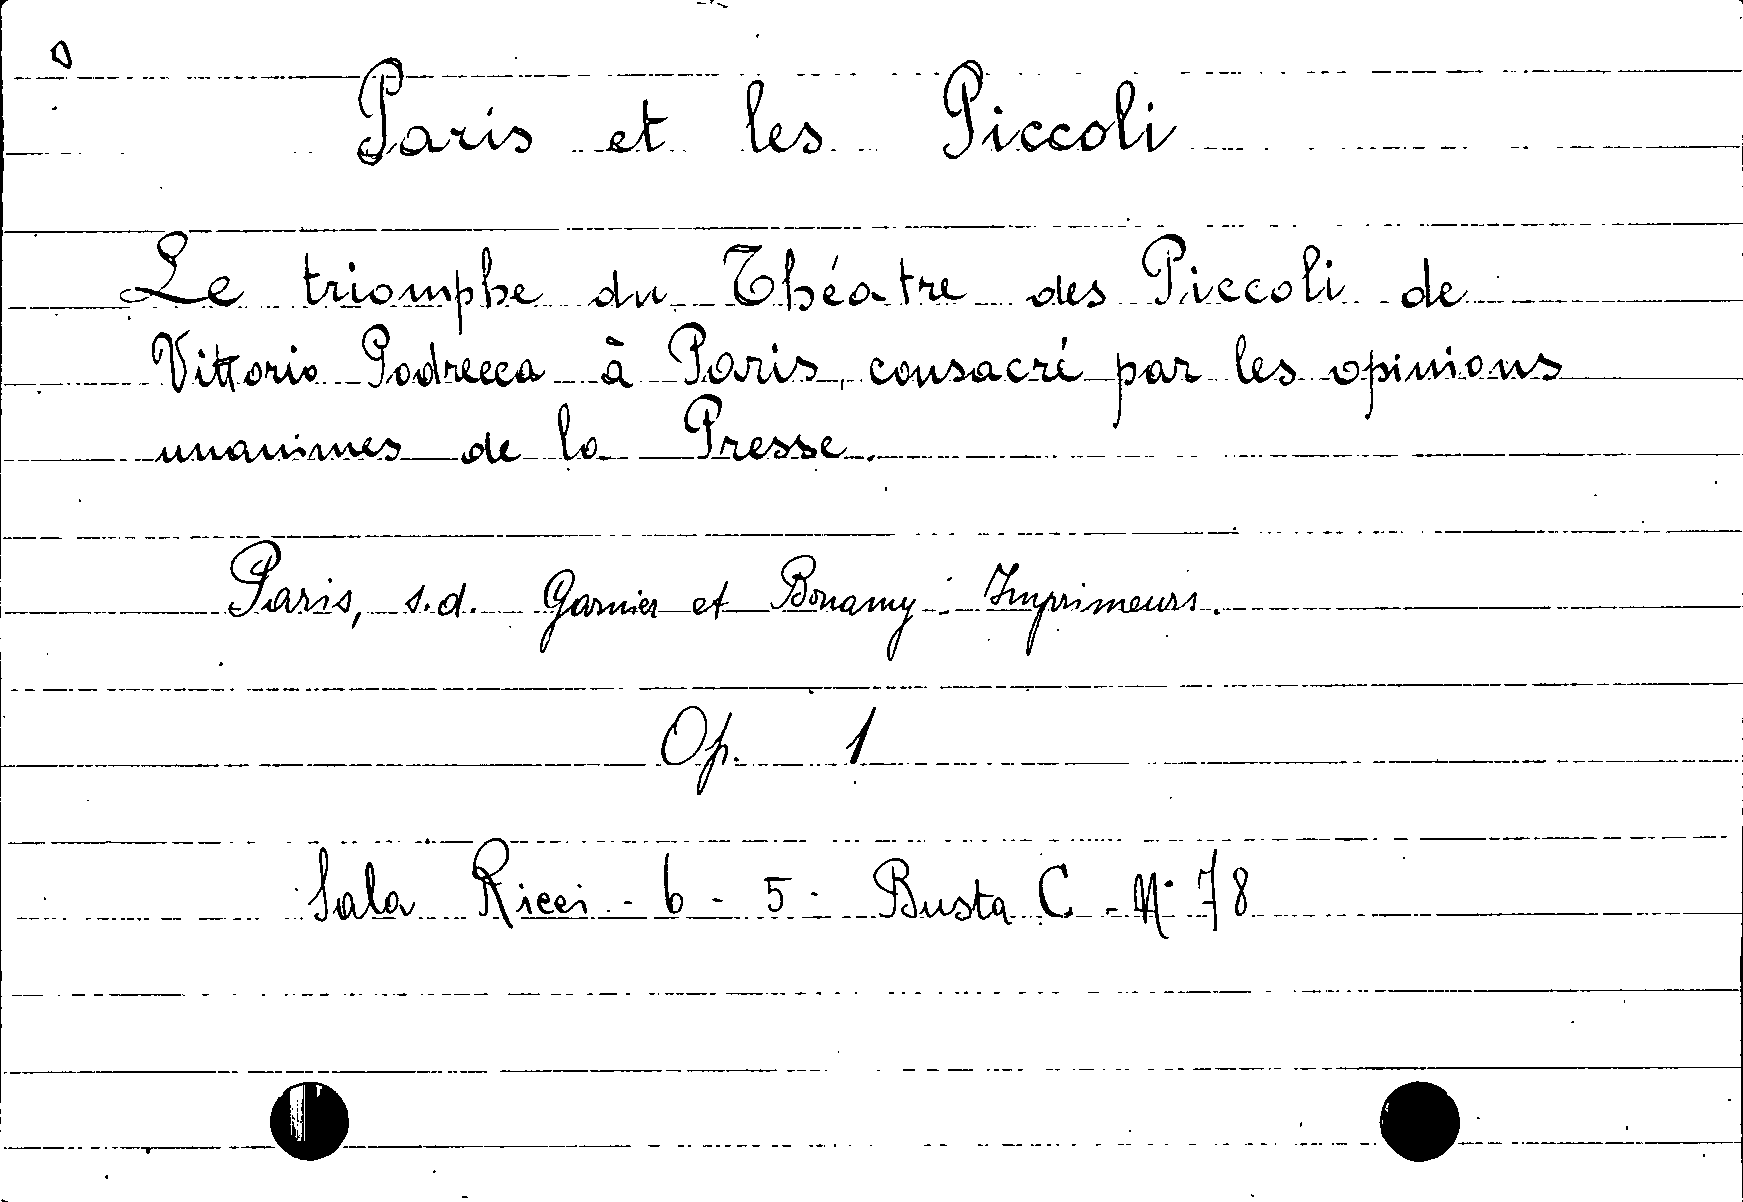 Paris et les Piccoli
Le triomphe du Théatre des Piccoli de
Vittorio Podrecca à Paris, consacré par les opinions
unanimes de la Presse.
Paris, s.d. Garnier et Bonamy - Imprimeurs.
Op. 1
Sala Ricci - 6 - 5 - Busta C - N° 78